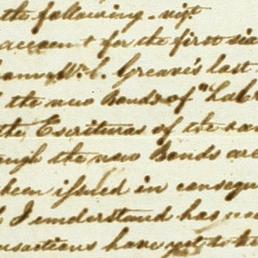 the following - viz.
account for the first six
Mr. C. Greaves last
the new Bonds of "Lab
the Escrituras of the sa
ough the new Bonds are
been issued in conseque
I understand has no
nsactions have yet to be